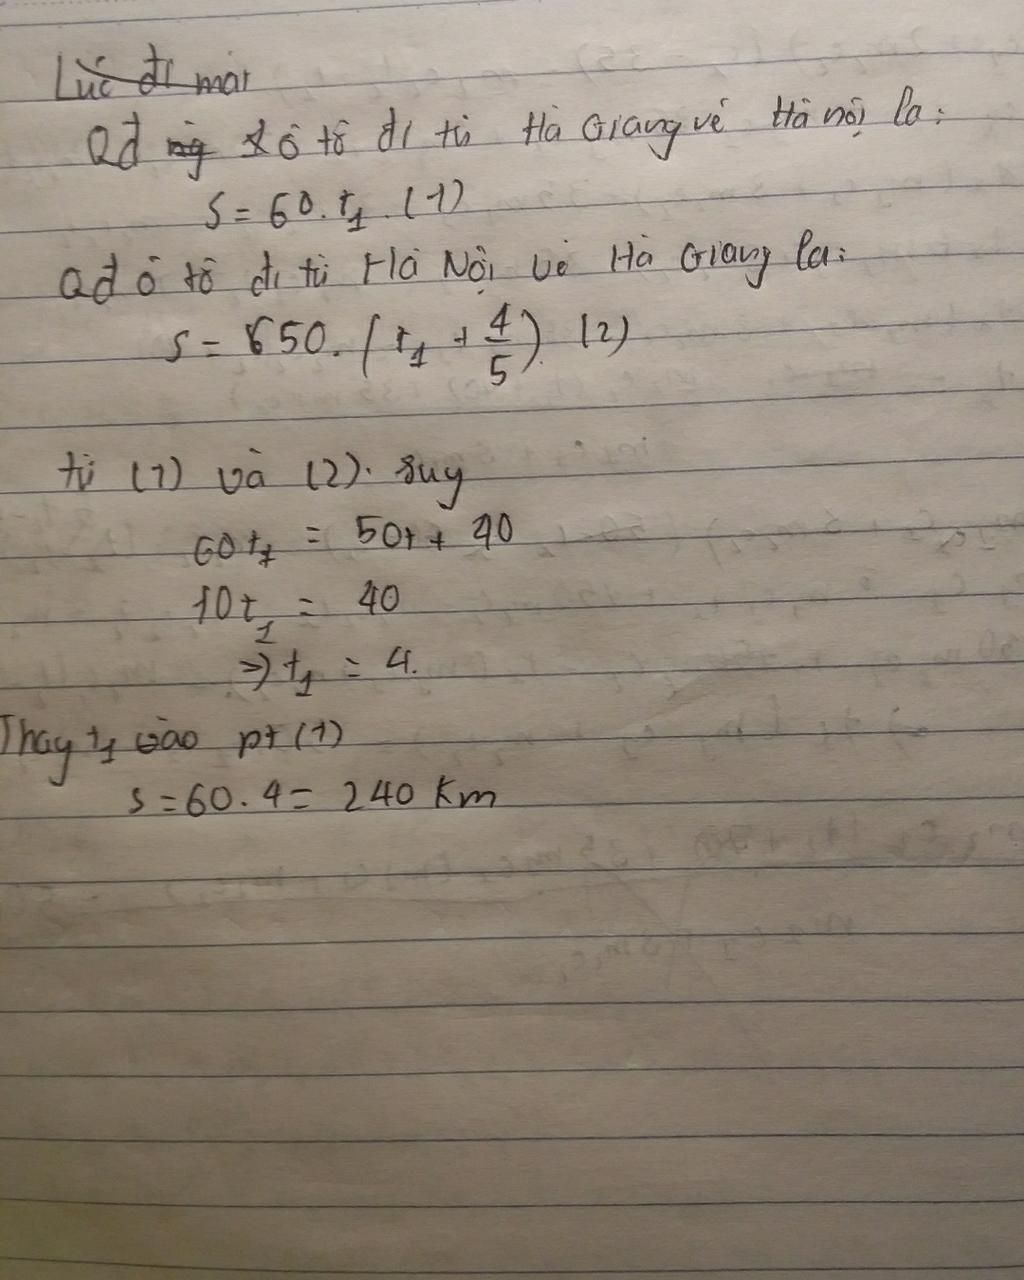 Lúc đi mai
Qđ ng ô tô đi từ Hà Giang về Hà nội la:
S = 60. t₁. (1)
Qđ ô tô đi từ Hà Nội về Hà Giang la:
S = 50. (t₁ + 4/5). (2)
từ (1) và (2). suy
60t₁ = 50t + 40
10t₁ = 40
=> t₁ = 4.
Thay t₁ vào pt (1)
s = 60. 4 = 240 Km